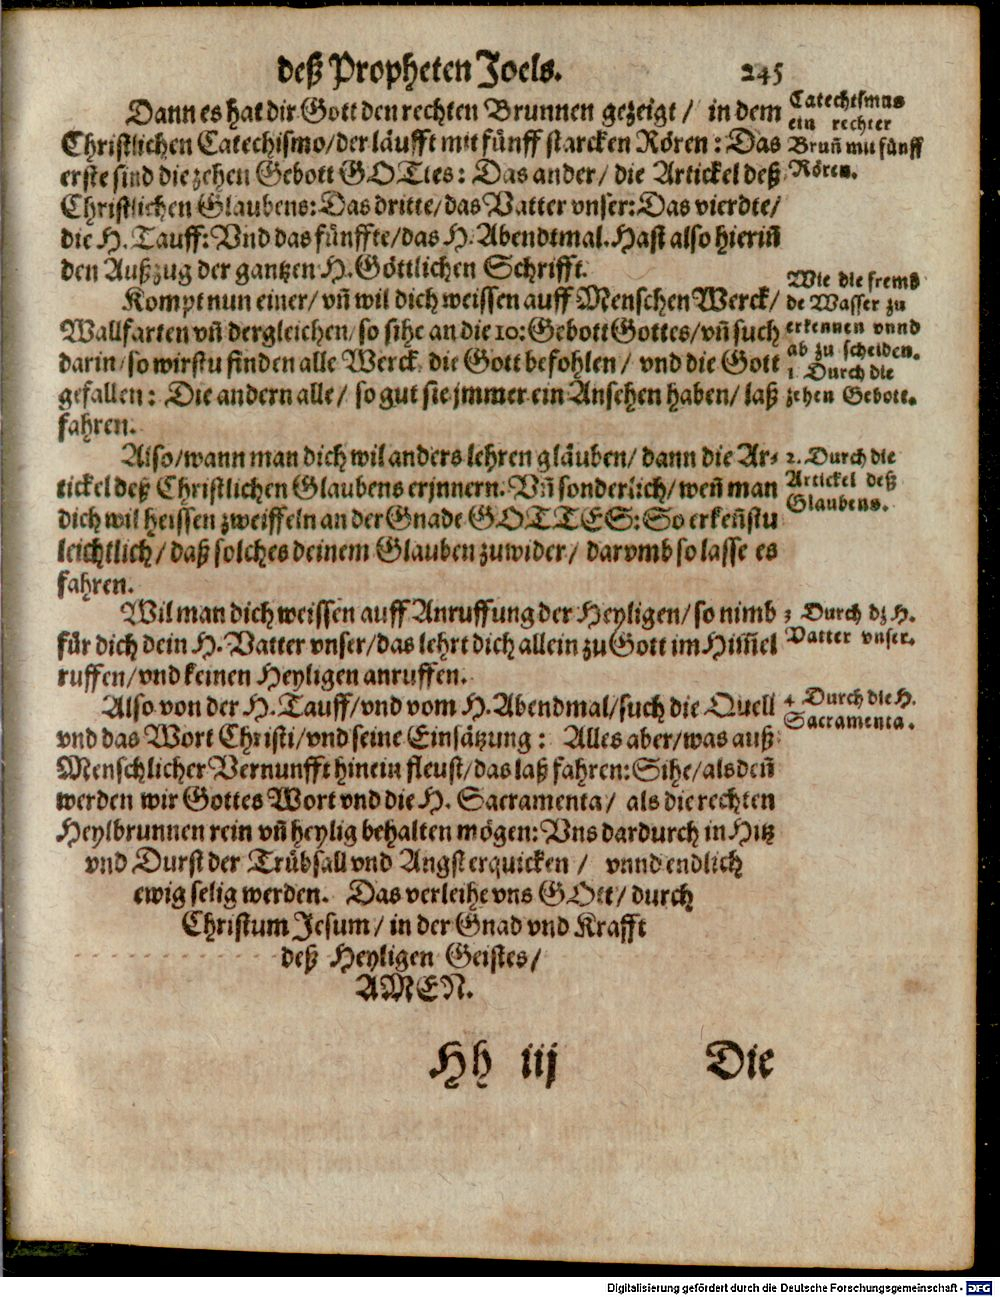 deß Propheten Joels. 245
Dann es hat dir Gott den rechten Brunnen gezeigt / in dem
Christlichen Catechismo/der läufft mit fünff starcken Rören: Das
erste sind die zehen Gebott GOTtes: Das ander/ die Artickel deß
Christlichen Glaubens: Das dritte/das Vatter vnser: Das vierdte/
die H. Tauff: Vnd das fünffte/das H. Abendtmal. Hast also hieriñ
den Außzug der gantzen H. Göttlichen Schrifft.
Kompt nun einer/ vñ wil dich weissen auff Menschen Werck/
Wallfarten vñ dergleichen/ so sihe an die 10: Gebott Gottes/ vñ such
darin/so wirstu finden alle Werck, die Gott befohlen / vnd die Gott
gefallen: Die andern alle/ so gut sie jmmer ein Ansehen haben/ laß
fahren.
Also/wann man dich wil anders lehren gläuben/ dann die Ar-
tickel deß Christlichen Glaubens erjnnern. Vñ sonderlich/ weñ man
dich wil heissen zweiffeln an der Gnade GOTTES: So erkeñstu
leichtlich/ daß solches deinem Glauben zuwider/ darvmb so lasse es
fahren.
Wil man dich weissen auff Anruffung der Heyligen/ so nimb
für dich dein H. Vatter vnser/das lehrt dich allein zu Gott im Him̃el
ruffen/vnd keinen Heyligen anruffen.
Also von der H. Tauff/vnd vom H. Abendmal/such die Quell
vnd das Wort Christi/vnd seine Einsätzung: Alles aber/was auß
Menschlicher Vernunfft hinein fleust/das laß fahren: Sihe/als deñ
werden wir Gottes Wort vnd die H. Sacramenta/ als die rechten
Heylbrunnen rein vñ heylig behalten mögen: Vns dardurch in Hitz
vnd Durst der Trübsall vnd Angst erquicken / vnnd endlich
ewig selig werden. Das verleihe vns GOtt/ durch
Christum Jesum/ in der Gnad vnd Krafft
deß Heyligen Geistes/
AMEN.
Hh iij Die
Catechismus
ein rechter
Bruñ mit fünff
Rören.
Wie die fremb
de Wasser zu
erkennen vnnd
ab zu scheiden.
1 Durch die
zehen Gebott.
2. Durch die
Artickel deß
Glaubens.
3 Durch dz H.
Vatter vnser.
4 Durch die H.
Sacramenta.
Digitalisierung gefördert durch die Deutsche Forschungsgemeinschaft - DFG